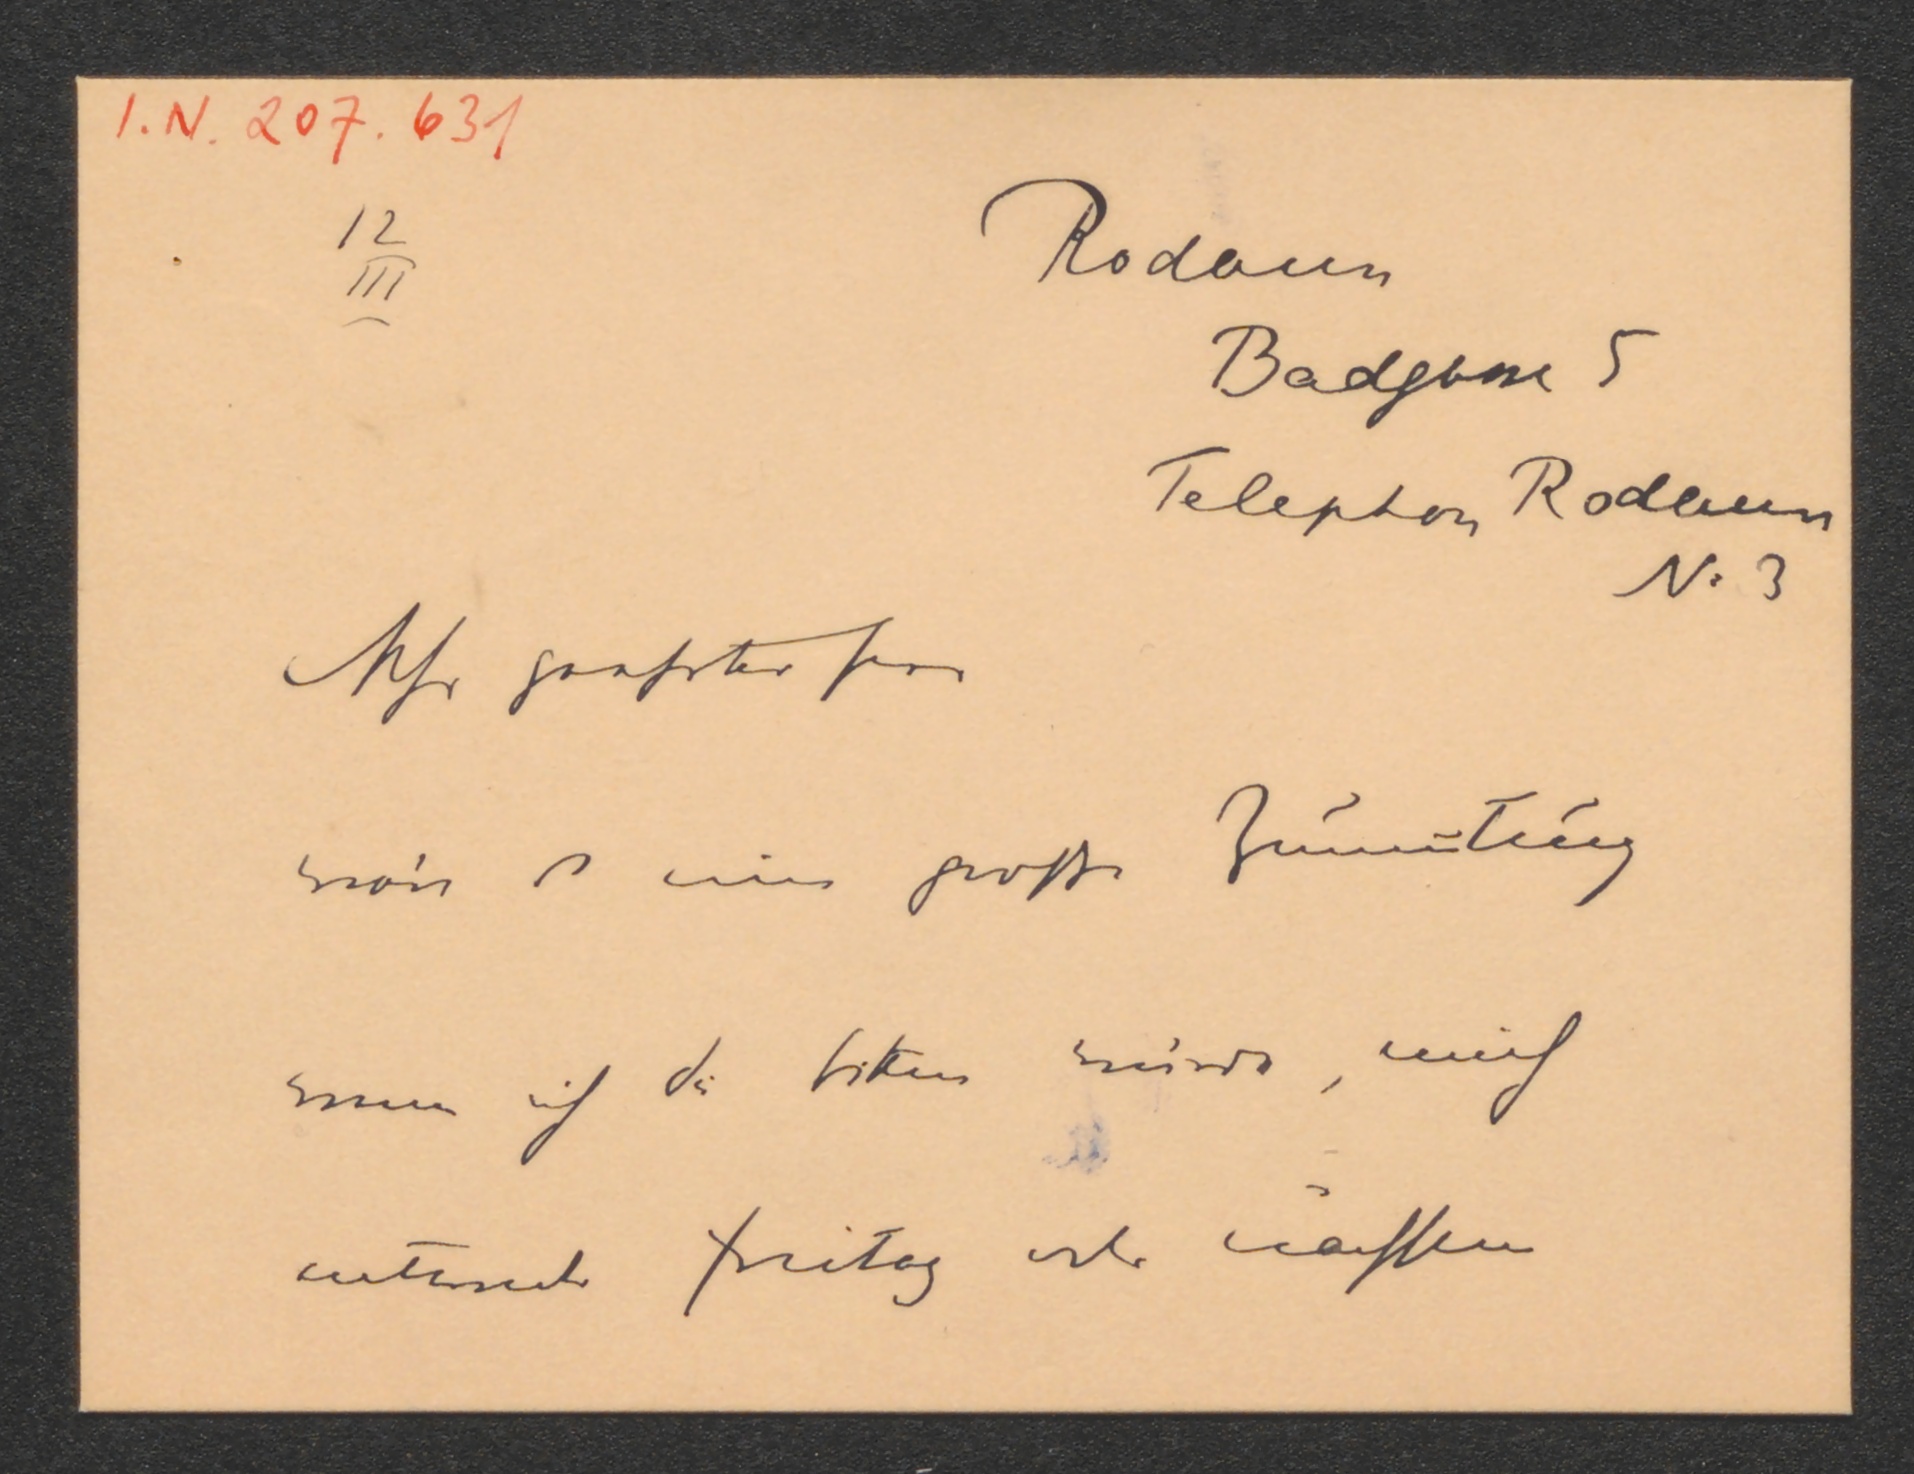 I.N. 207.631
12
III
Rodaun
Badgasse 5
Telephon Rodaun
N. 3
Sehr geehrter Herr
wär es eine große Zumutung
wenn ich Sie bitten würde, mich
entweder Freitag oder nächsten